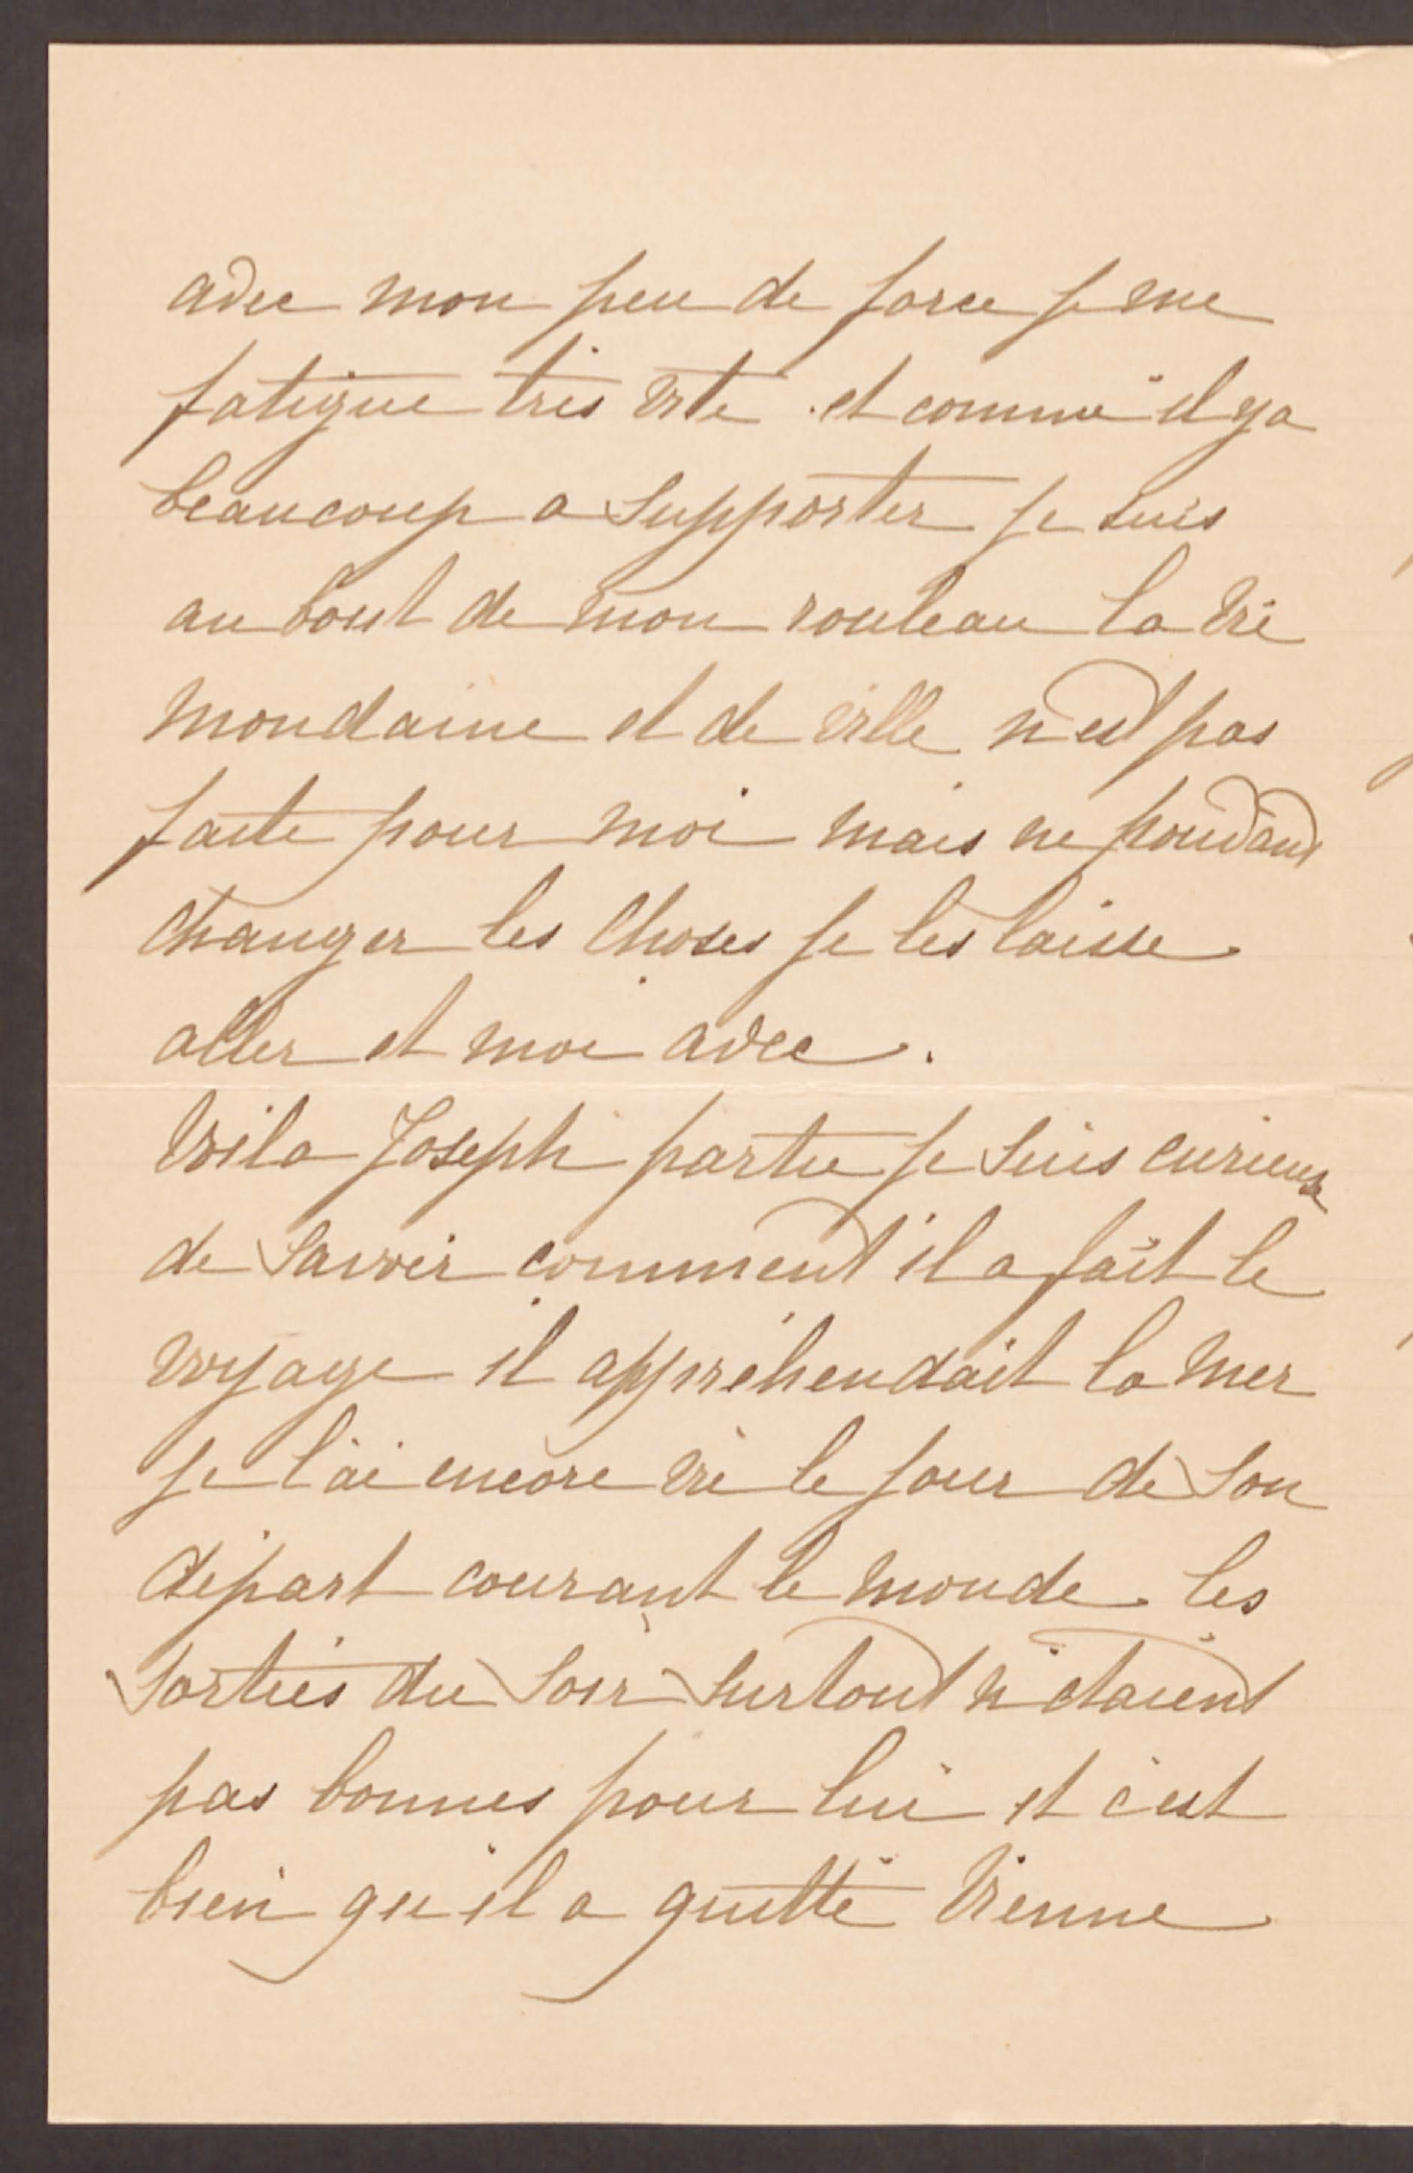 avec mon peu de force je me
fatigue très vite . et comme il y a
beaucoup a supporter je suis
au bout de mon rouleau la vie
mondaine et de ville n'est pas
faite pour moi mais ne pouvant
changer les choses je les laisse
aller et moi avec.
Voila Joseph partie je suis curieuse
de savoir comment il a fait le
voyage il appréhendait la mer
je l'ai encore vu le jour de son
départ courant le monde. les
sorties du soir surtout n'étaient
pas bonnes pour lui et c'est
bien qu'il a quitté Vienne